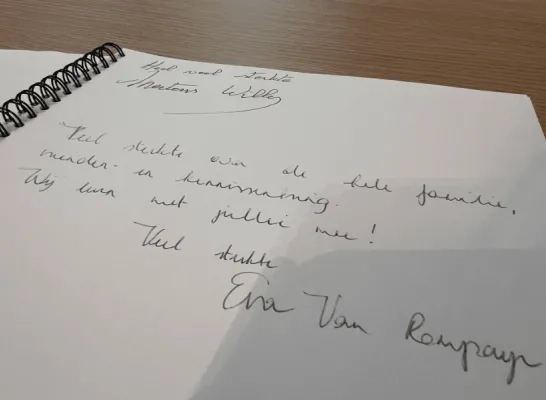 Heel veel sterkte
Mertens Willy
Veel sterkte aan de hele familie,
vrienden- en kennissenkring.
Wij leven met jullie mee!
Veel sterkte
Eva Van Rompaey